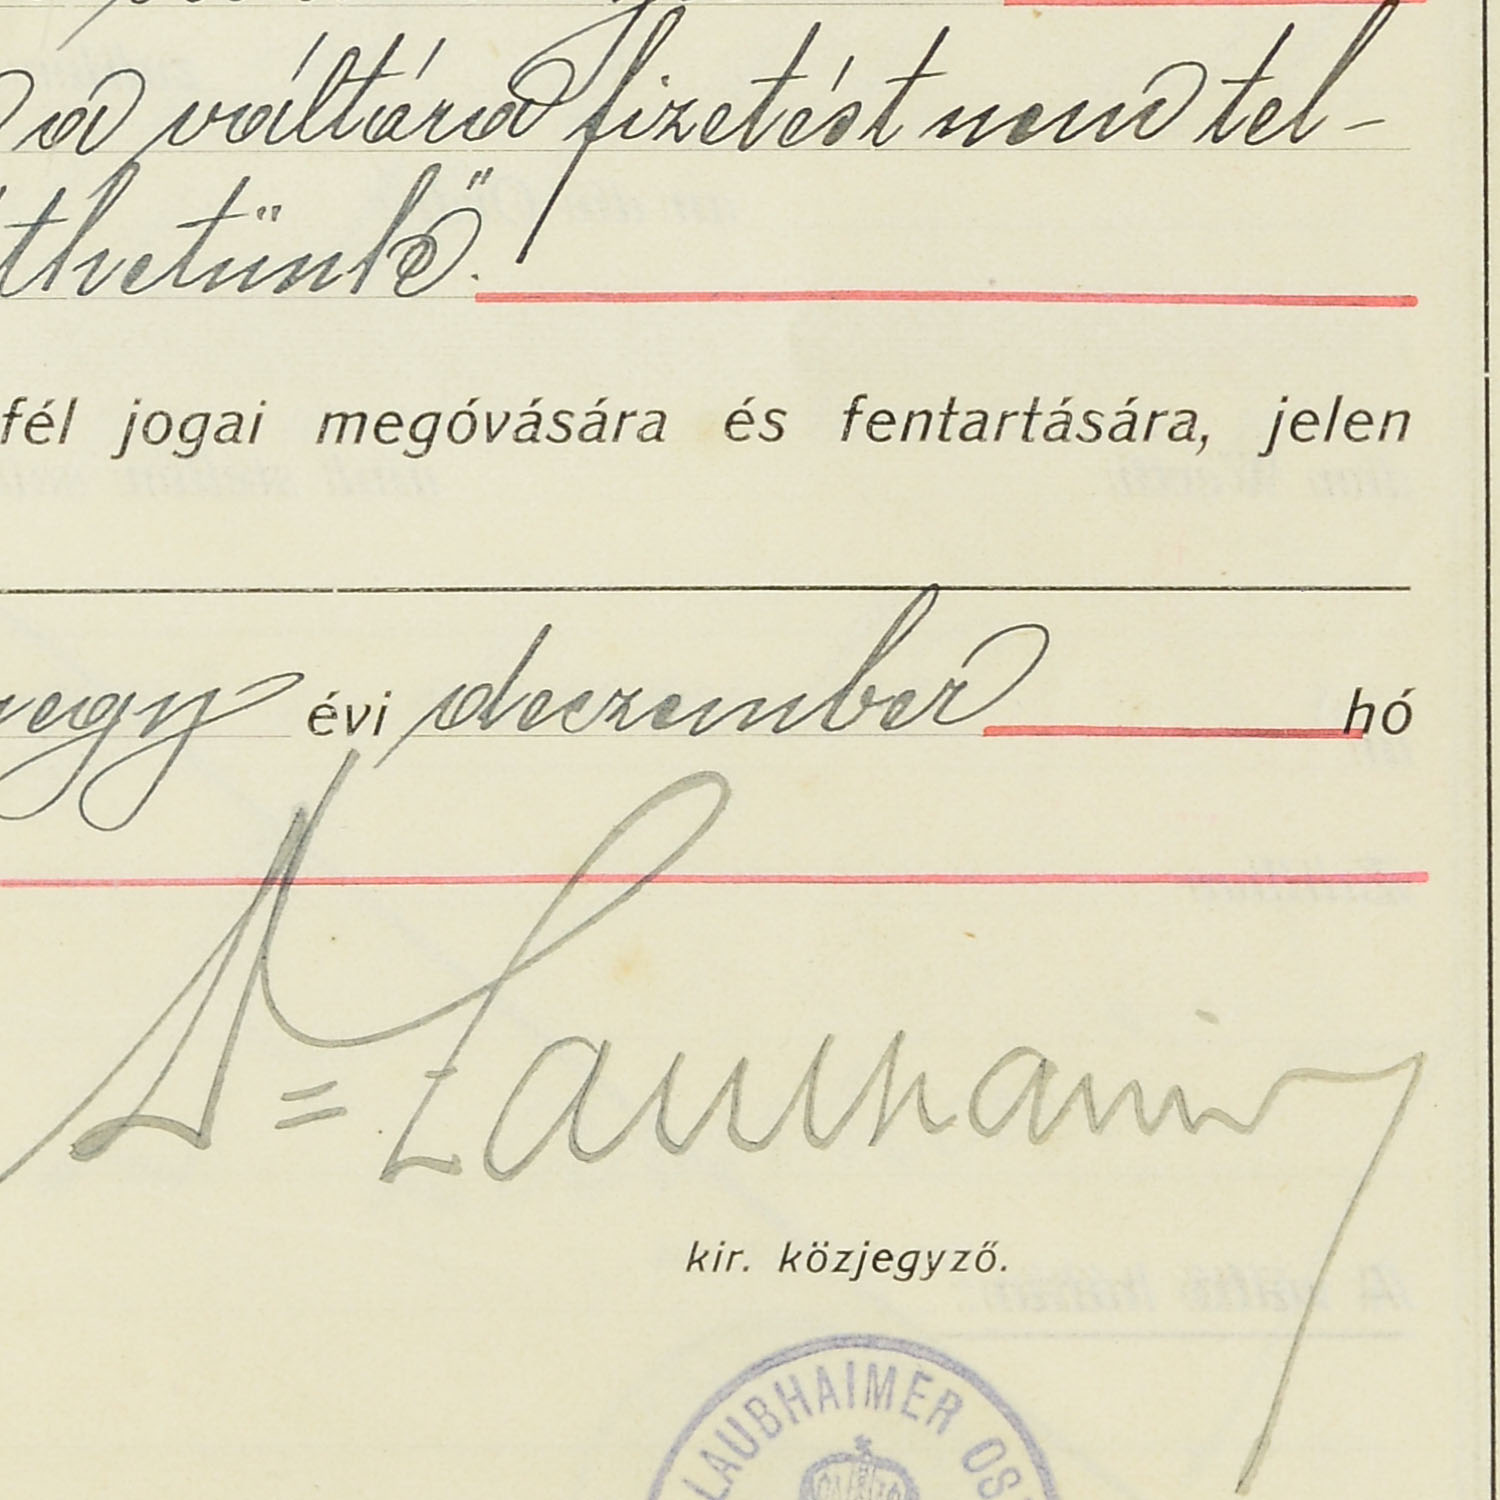 a váltóra fizetést nem tel-
thetünk".
fél jogai megóvására és fentartására, jelen
negy évi deczember hó
Dr Laubhaimer
kir. közjegyző.
LAUBHAIMER OS